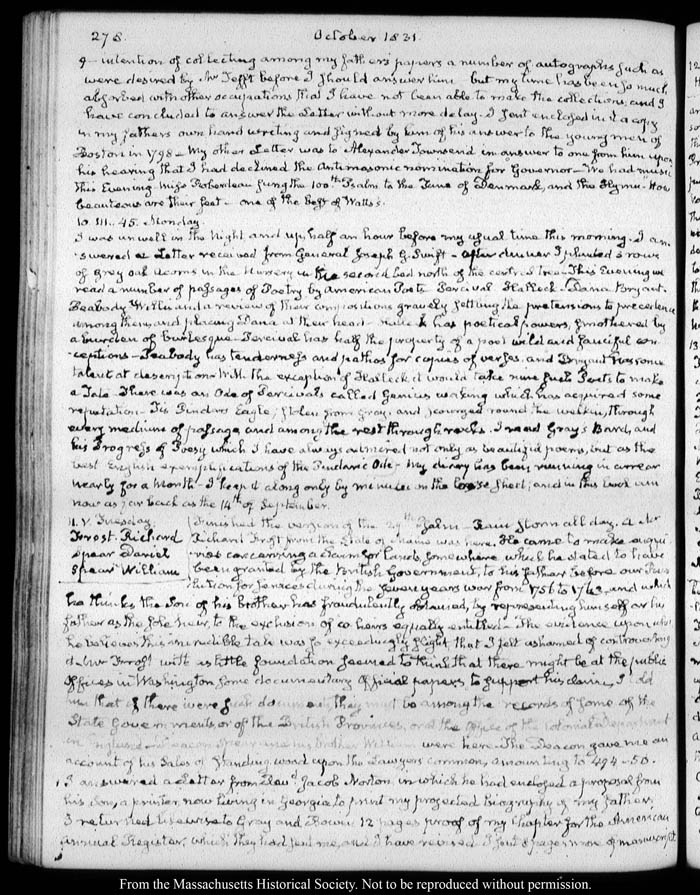 278. October 1831.
9— intention of collecting among my father's papers a number of autographs such as
were desired by Mr Tefft before I should answer him— but my time has been so much
absorbed with other occupations that I have not been able to make the collections, and I
have concluded to answer the Letter without more delay— I sent enclosed in it a copy
in my fathers own hand writing and signed by him of his answer to the young men of
Boston in 1798— My other Letter was to Alexander Townsend in answer to one from him upon
his hearing that I had declined the Antimasonic nomination for Governor— We had music
this Evening Miss Roberdeau sung the 100th Psalm to the Tune of Denmark, and the Hymn "How
beauteous are their feet— one of the best of Watts's.
10. III. 45. Monday.
I was unwell in the Night and up half an hour before my usual time this morning. I an-
swered a Letter received from General Joseph G. Swift— After dinner I planted 3 rows
of grey oak acorns in the Nursery in the second bed north of the central tree— This Evening we
read a number of passages of Poetry by American Poets Percival Halleck— Dana Bryant.
Peabody Willis and a review of their compositions gravely settling the pretensions to precedence
among them, and placing Dana at their head— Halleck has poetical powers, smothered by
a burden of burlesque— Percival has half the property of a poet wild and fanciful con-
ceptions— Peabody has tenderness and pathos for copies of verses, and Bryant has some
talent at description— With the exception of Halleck it would take nine such Poets to make
a Tate. There was an Ode of Percivals called Genius waking which has acquired some
reputation— Tis Pindars Eagle, stolen from Gray, and scourged round the welkin, through
every medium of passage and among the rest through rocks. I read Gray's Bard, and
his Progress of Poesy which I have always admired not only as beautiful poems, but as the
best English exemplifications of the Pindaric Ode— My diary has been running in arrear
nearly for a Month— I keep it along only by minutes on the loose sheet; and in this book am
now as far back as the 14th of September.
11. V. Tuesday. Finished the version of the 29th Psalm— Rain storm all day. A Mr
Frost. Richard Richard Frost from the State of Maine was here. He came to make enqui
Spear Daniel ries concerning a claim for Lands somewhere which he stated to have
Spear William been granted by the British Government, to his father before our Revo
lution for services during the seven years war from 1756 to 1763, and which
he thinks the Son of his brother has fraudulently obtained, by representing himself or his
father as the sole heir, to the exclusion of co heirs equally entitled— The evidence upon which
he believes this incredible tale was so exceedingly slight, that I felt ashamed of controverting
it— Mr Frost with as little foundation seemed to think that there might be at the public
Offices in Washington some documentary Official papers, to support his claim, I told
him that if there were such documents they must be among the records of some of the
State Governments or of the British Provinces, or at the Office of the Colonial Department
in England— Deacon Spear and his brother William were here— The Deacon gave me an
account of his Sales of Standing wood upon the Lawyers common, amounting to 494-50.
I answered a Letter from Revd Jacob Norton, in which he had enclosed a proposal from
his Son, a printer now living in Georgia to print my projected Biography of my father,
I returned likewise to Gray and Bowen 12 pages proof of my chapter for the American
Annual Register, which they had sent me, and I have revised— I sent 8 pages more of manuscript
From the Massachusetts Historical Society. Not to be reproduced without permission.